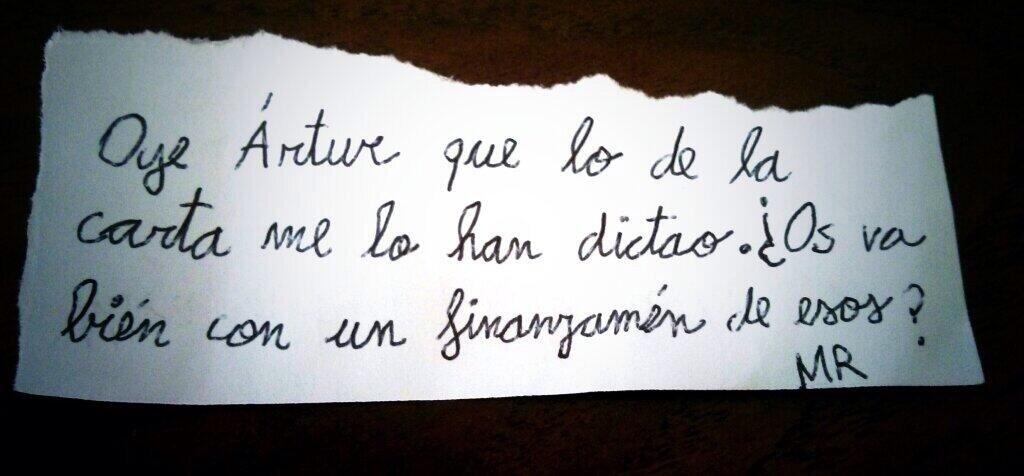 Oye Ártur que lo de la
carta me lo han dictao. ¿Os va
bién con un finanzamén de esos?
MR